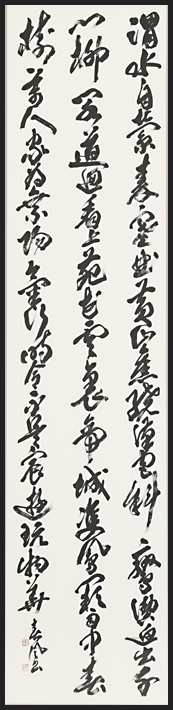 渭水自縈秦塞曲黄山舊繞漢宮斜鑾輿迥出千
門柳閣道迴看上苑花雲裏帝城雙鳳闕雨中春
樹萬人家為乘陽氣行時令不是宸遊玩物華 春風書